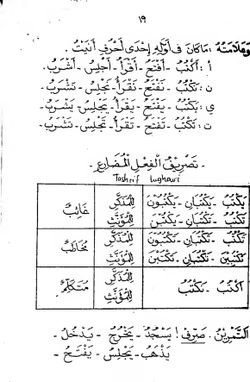 ١٩
وَعَلَامَتُهُ : مَا كَانَ فِي أَوَّلِهِ إِحْدَى أَحْرُفِ أَنَيْتُ .
أ : أَكْتُبُ - أَفْتَحُ - أَقْرَأُ - أَجْلِسُ - أَشْرَبُ .
ن : نَكْتُبُ - نَفْتَحُ - نَقْرَأُ - نَجْلِسُ - نَشْرَبُ .
ي : يَكْتُبُ - يَفْتَحُ - يَقْرَأُ - يَجْلِسُ - يَشْرَبُ .
ت : تَكْتُبُ - تَفْتَحُ - تَقْرَأُ - تَجْلِسُ - تَشْرَبُ .
تَصْرِيْفُ الْفِعْلِ الْمُضَارِعِ .
Tashrif lughawi
يَكْتُبُ - يَكْتُبَانِ - يَكْتُبُوْنَ لِلْمُذَكَّرِ غَائِبٌ
تَكْتُبُ - تَكْتُبَانِ - يَكْتُبْنَ لِلْمُؤَنَّثِ
تَكْتُبُ - تَكْتُبَانِ - تَكْتُبُوْنَ لِلْمُذَكَّرِ مُخَاطَبٌ
تَكْتُبِيْنَ - تَكْتُبَانِ - تَكْتُبْنَ لِلْمُؤَنَّثِ
أَكْتُبُ - نَكْتُبُ لِلْمُذَكَّرِ مُتَكَلِّمٌ
لِلْمُؤَنَّثِ
التَّمْرِيْنُ . صَرِّفْ ! يَسْجُدُ - يَخْرُجُ - يَدْخُلُ -
يَذْهَبُ - يَجْلِسُ - يَفْتَحُ -